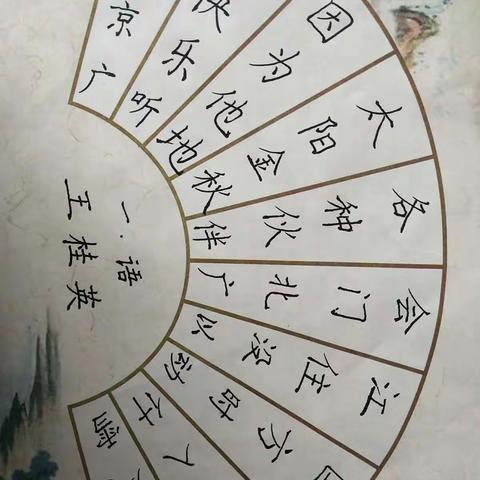 京广
快乐听
因为他地
太阳金秋
各种伙伴
会门北广
江住没以
方时动
了午
一.语
王桂英